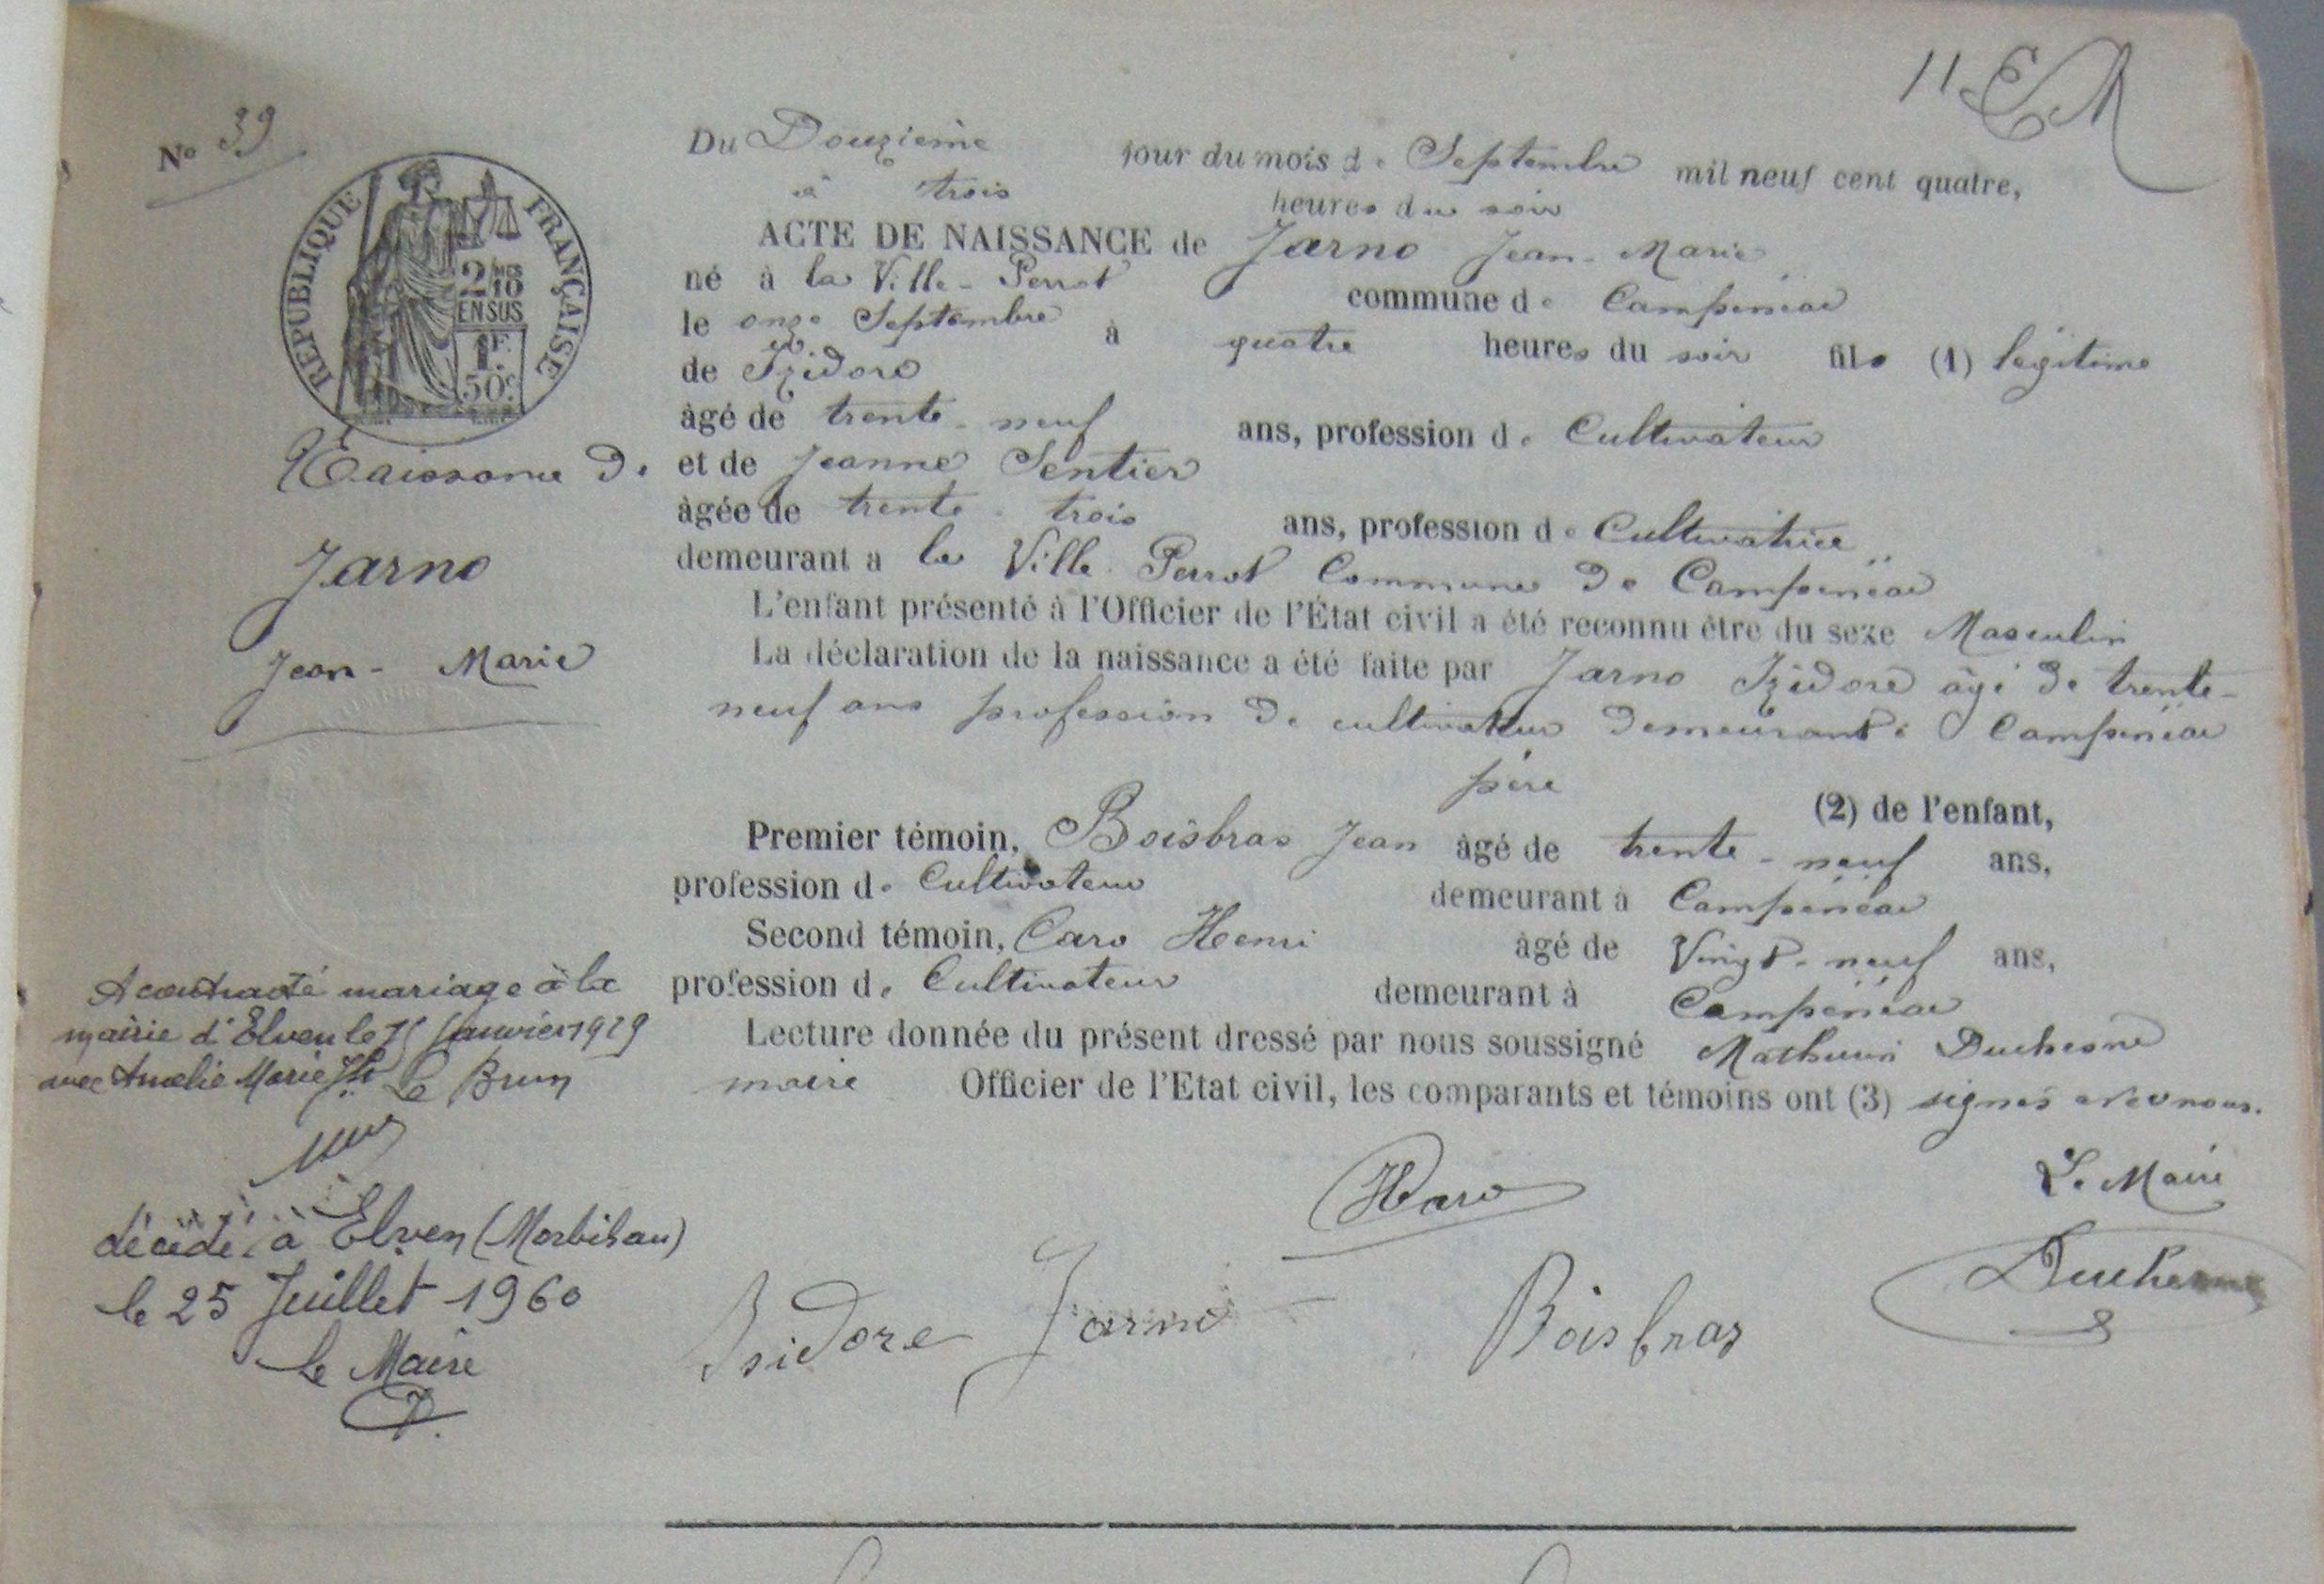 11
N° 39
RÉPUBLIQUE FRANÇAISE
2/10MES
EN SUS
1F.
50c.
Naissance de
Jarno
Jean-Marie
Du Douzième jour du mois de Septembre mil neuf cent quatre,
à trois heures du soir
ACTE DE NAISSANCE de Jarno Jean-Marie
né à la Ville-Perrot commune de Campénéac
le onze Septembre à quatre heures du soir fils (1) légitime
de Izidore
âgé de trente-neuf ans, profession de Cultivateur
et de Jeanne Sentier
âgée de trente-trois ans, profession de Cultivatrice
demeurant a la Ville-Perrot Commune de Campénéac
L'enfant présenté à l'Officier de l'État civil a été reconnu être du sexe Masculin
La déclaration de la naissance a été faite par Jarno Izidore âgé de trente-
neuf ans profession de cultivateur demeurant à Campénéac
père (2) de l'enfant,
Premier témoin, Boisbras Jean âgé de trente-neuf ans,
profession de Cultivateur demeurant à Campénéac
Second témoin, Caro Henri âgé de Vingt-neuf ans,
profession de Cultivateur demeurant à Campénéac
Lecture donnée du présent dressé par nous soussigné Mathurin Duchesne
maire Officier de l'Etat civil, les comparants et témoins ont (3) signés avec nous.
A contracté mariage à la
mairie d'Elven le janvier 1929
avec Amélie Marie Le Brun
décédé à Elven (Morbihan)
le 25 Juillet 1960
Le Maire
HCaro
Le Maire
Duchesne
Isidore Jarno
Boisbras